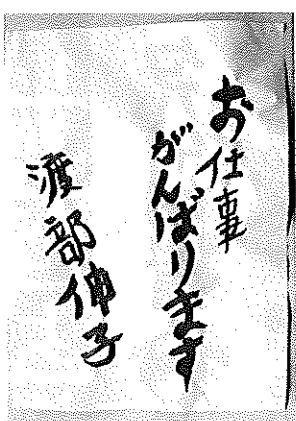 お仕事
がんばります
渡部伸子